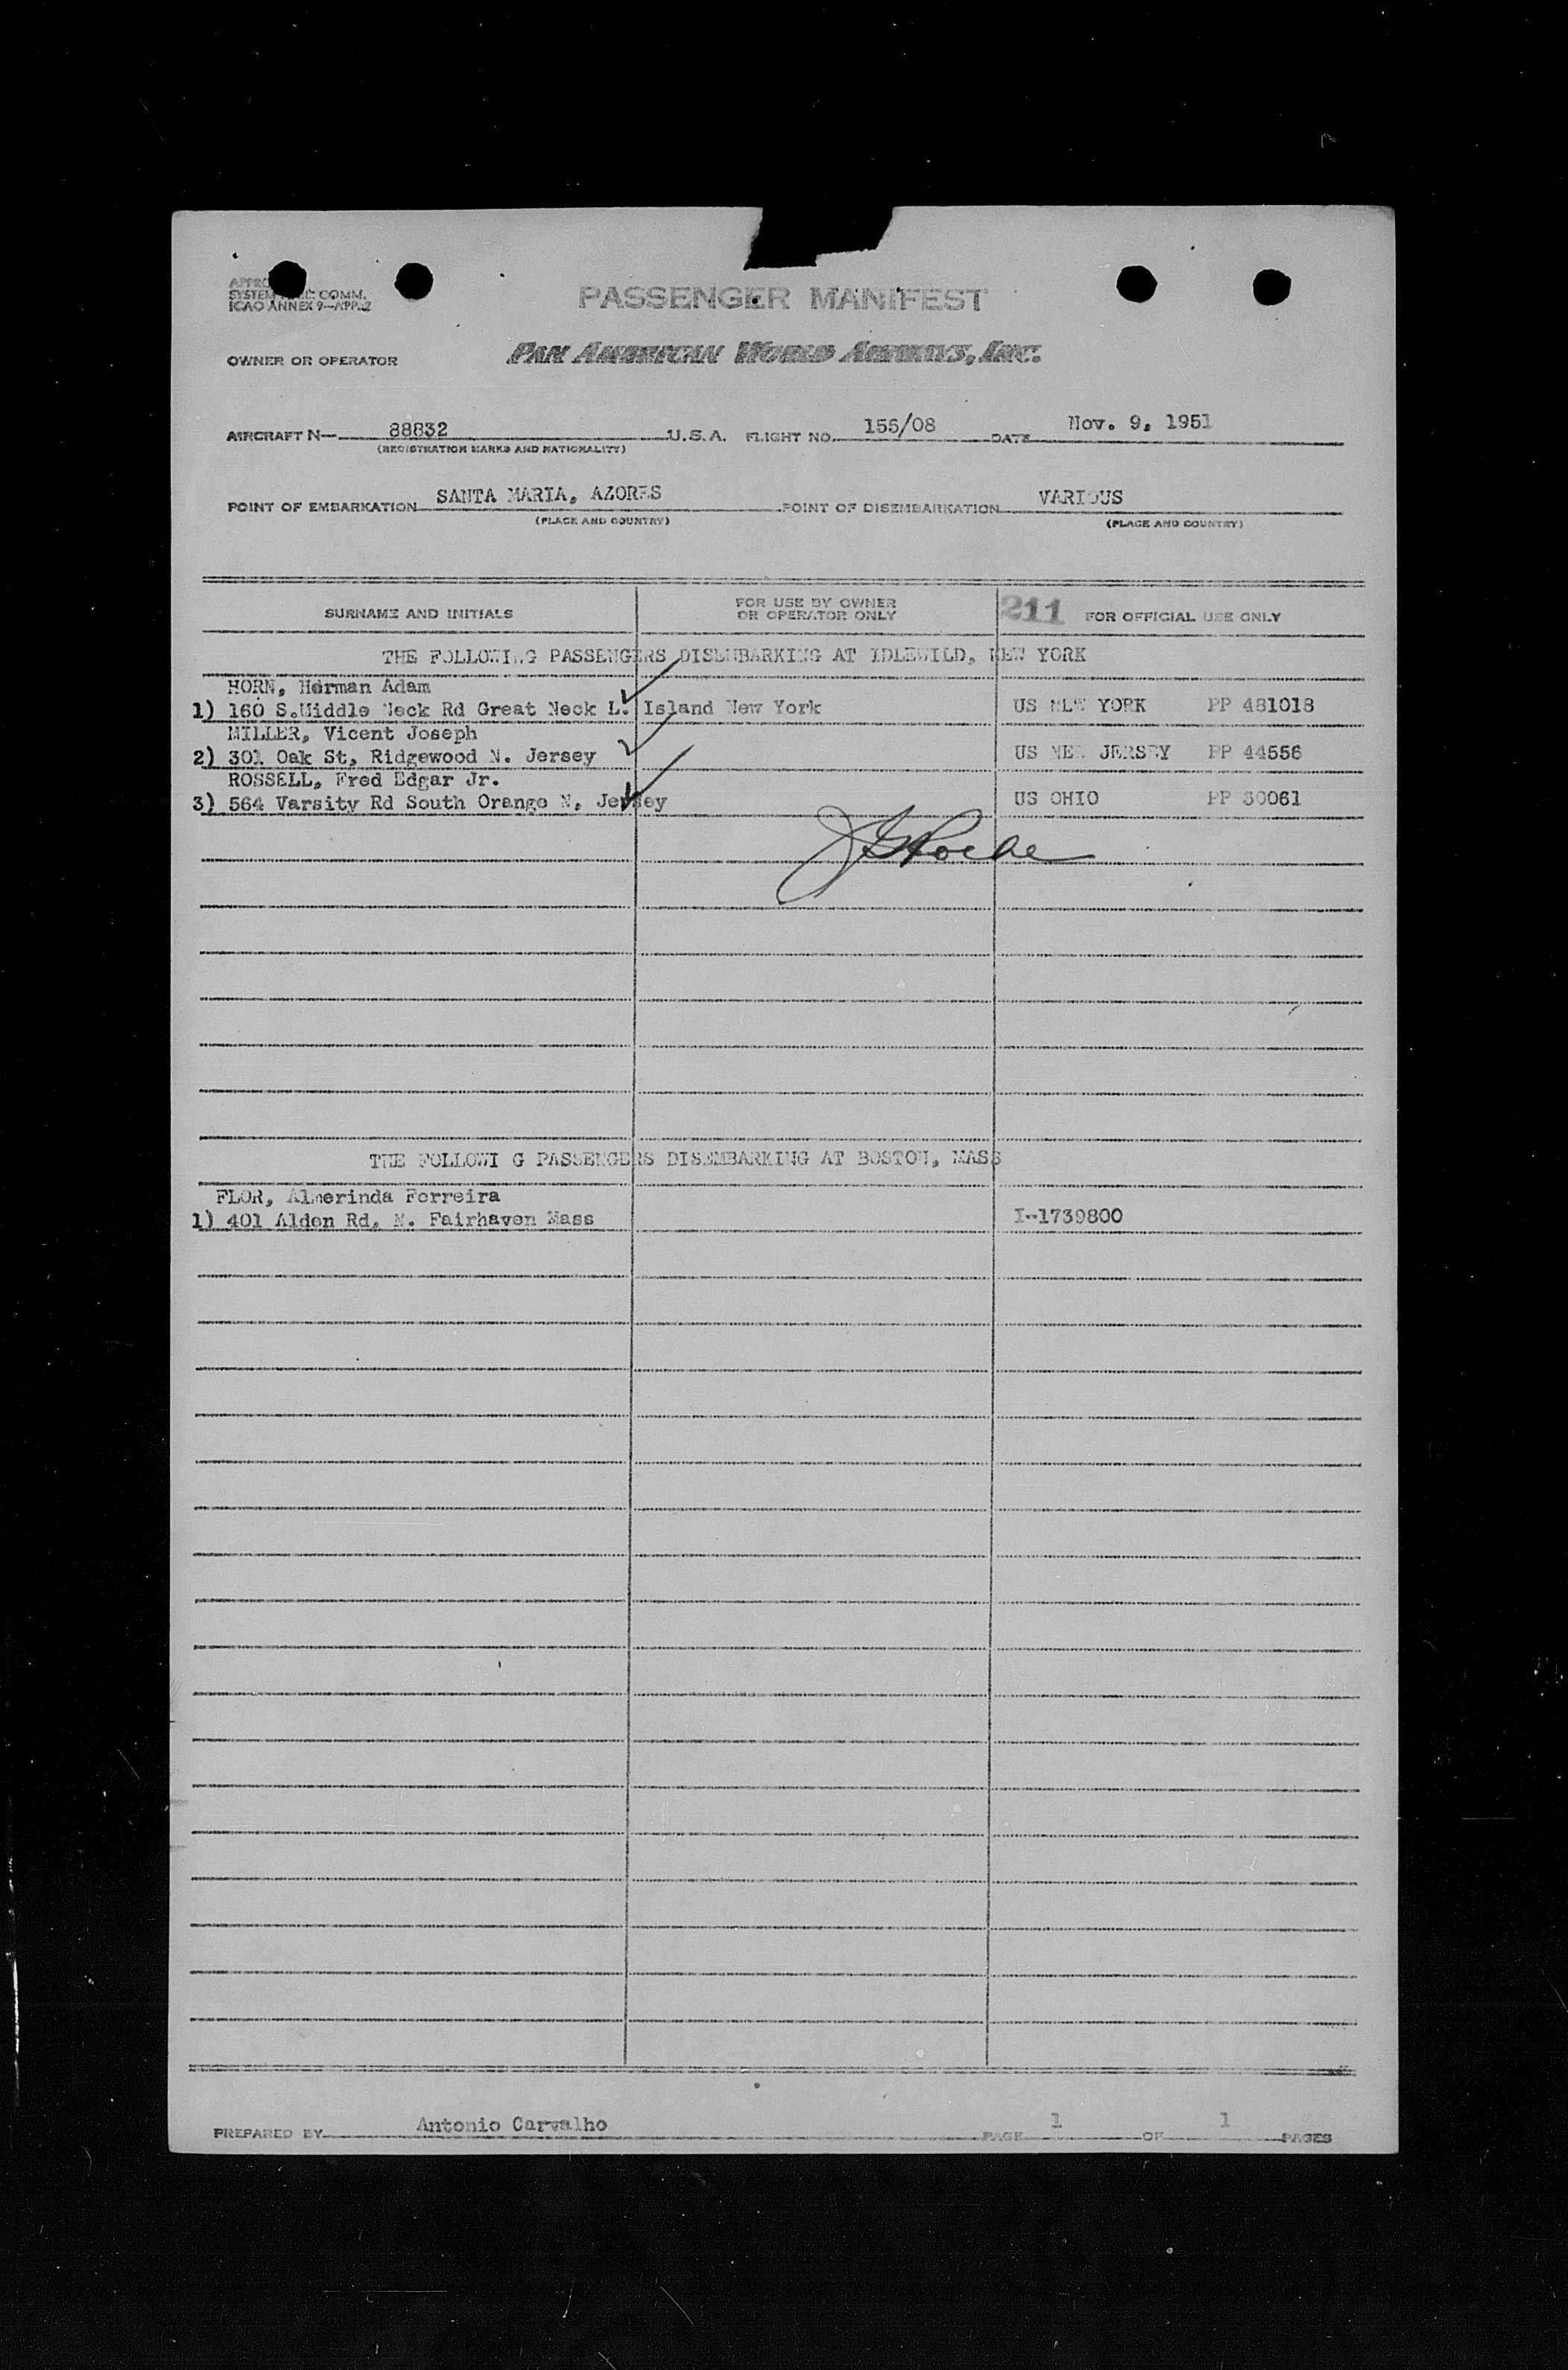 SYSTEM COMM.
ICAO ANNEX 9—APP.2
PASSENGER MANIFEST
OWNER OR OPERATOR PAN AMERICAN WORLD AIRWAYS, INC.
AIRCRAFT N— 88832 U.S.A. FLIGHT NO. 155/08 DATE Nov. 9, 1951
(REGISTRATION MARKS AND NATIONALITY)
POINT OF EMBARKATION SANTA MARIA, AZORES POINT OF DISEMBARKATION VARIOUS
(PLACE AND COUNTRY) (PLACE AND COUNTRY)
SURNAME AND INITIALS FOR USE BY OWNER OR OPERATOR ONLY 211 FOR OFFICIAL USE ONLY
THE FOLLOWING PASSENGERS DISEMBARKING AT IDLEWILD, NEW YORK
HORN, Herman Adam
1) 160 S.Middle Neck Rd Great Neck L. Island New York US NEW YORK PP 481018
MILLER, Vicent Joseph
2) 301 Oak St, Ridgewood N. Jersey US NEW JERSEY PP 44556
ROSSELL, Fred Edgar Jr.
3) 564 Varsity Rd South Orange N, Jersey US OHIO PP 30061
THE FOLLOWI G PASSENGERS DISEMBARKING AT BOSTON, MASS
FLOR, Almerinda Ferreira
1) 401 Alden Rd, N. Fairhaven Mass I-1739800
PREPARED BY Antonio Carvalho PAGE 1 OF 1 PAGES